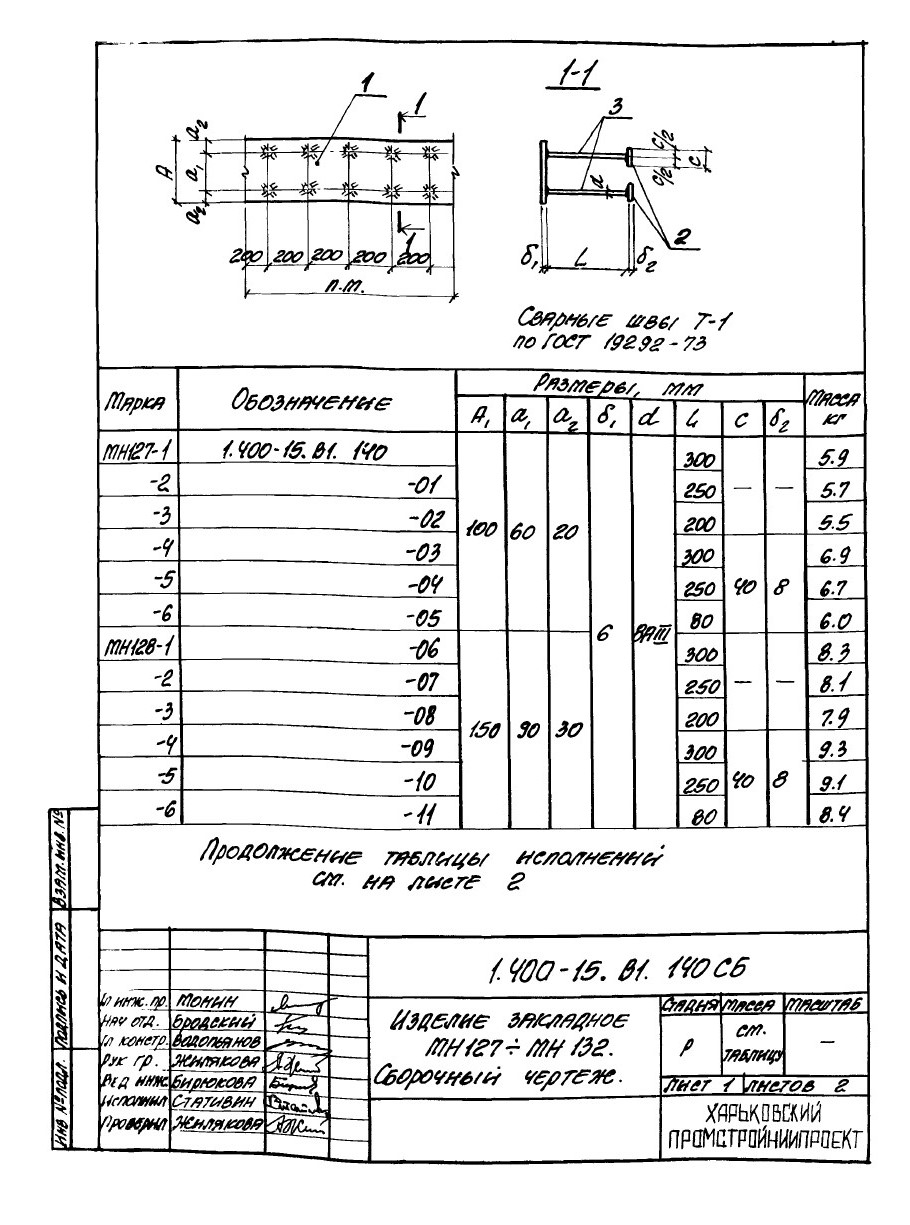 1
1-1
1
1
3
2
a₂
A
a₁
a₂
200 200 200 200 200
п.м.
d
c/2
c/2
c
δ₁ L δ₂
Сварные швы Т-1
по ГОСТ 19292-73
Марка Обозначение Размеры, мм Масса кг
A₁ a₁ a₂ δ₁ d L c δ₂
МН127-1 1.400-15.В1. 140 100 60 20 6 8АIII 300 — — 5.9
-2 -01 250 5.7
-3 -02 200 5.5
-4 -03 300 40 8 6.9
-5 -04 250 6.7
-6 -05 80 6.0
МН128-1 -06 150 90 30 300 — — 8.3
-2 -07 250 8.1
-3 -08 200 7.9
-4 -09 300 40 8 9.3
-5 -10 250 9.1
-6 -11 80 8.4
Продолжение таблицы исполнений
см. на листе 2
Взам.инв.№
Подпись и дата
Инв № подл.
Гл инж.пр. Монин
Нач отд. Бродский
Гл констр. Водопьянов
Рук гр. Жилякова
Вед инж. Бирюкова
Исполнил Стативин
Проверил Жилякова
1.400-15.В1. 140 СБ
Изделие закладное
МН127÷МН 132.
Сборочный чертеж.
Стадия Масса Масштаб
Р см. таблицу —
Лист 1 Листов 2
Харьковский
Промстройниипроект